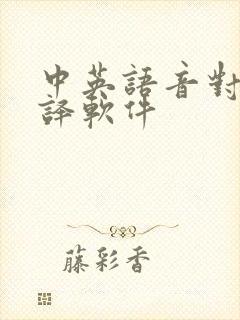 中英語音對
譯軟件
藤彩香